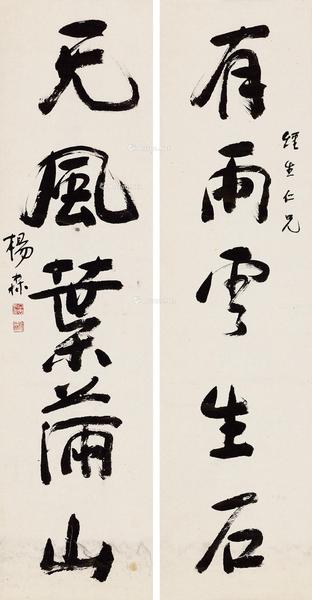 有雨雲生石
經生仁兄
无風葉滿山
楊森